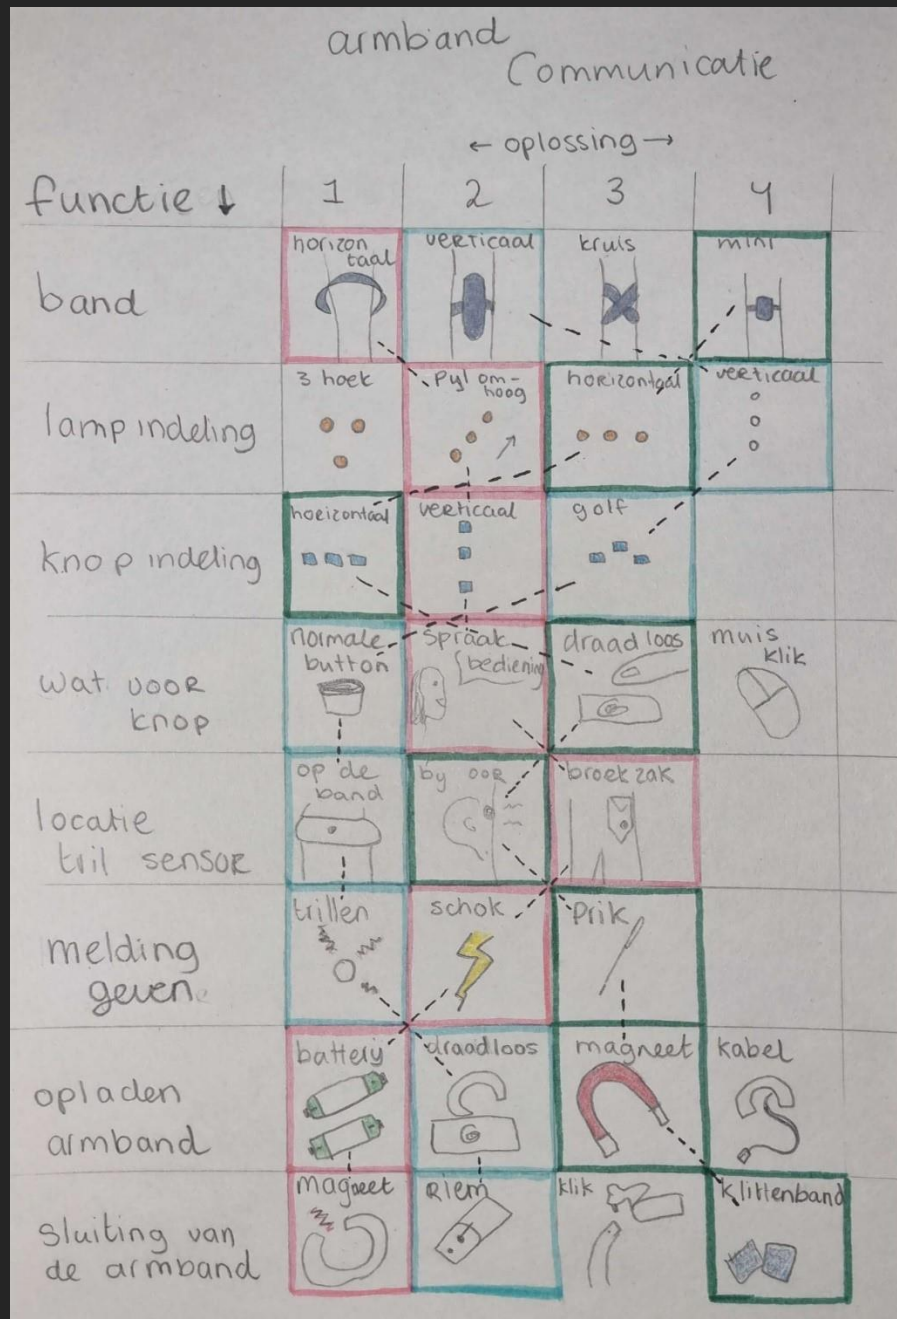 armband
Communicatie
← oplossing →
functie ↓ 1 2 3 4
band
horizon
taal
verticaal
kruis
mini
lampindeling
3 hoek
Pyl om-
hoog
horizontaal
verticaal
knop indeling
horizontaal
verticaal
golf
wat voor
knop
normale
button
spraak
bediening
draadloos
muis
klik
locatie
tril sensor
op de
band
by oor
broekzak
melding
geven
trillen
schok
prik
opladen
armband
battery
draadloos
magneet
kabel
sluiting van
de armband
magneet
Riem
klik
klittenband